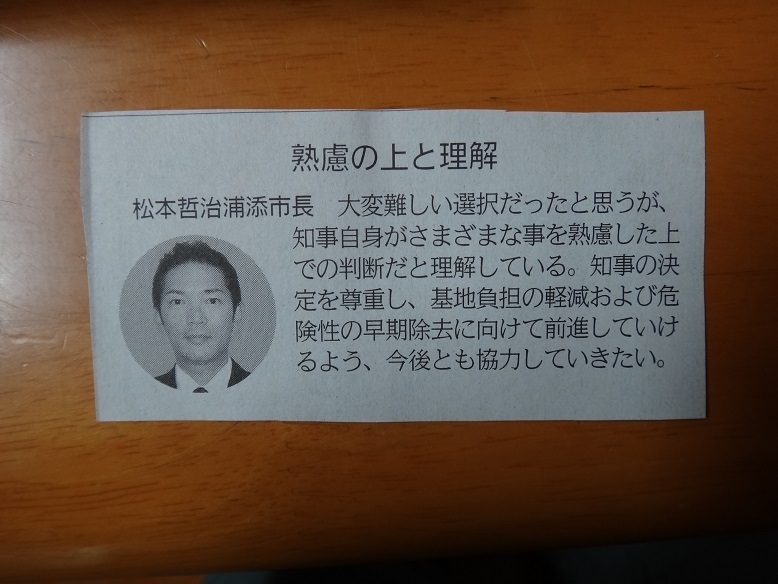 熟慮の上と理解
松本哲治浦添市長　大変難しい選択だったと思うが、
知事自身がさまざまな事を熟慮した上
での判断だと理解している。知事の決
定を尊重し、基地負担の軽減および危
険性の早期除去に向けて前進していけ
るよう、今後とも協力していきたい。